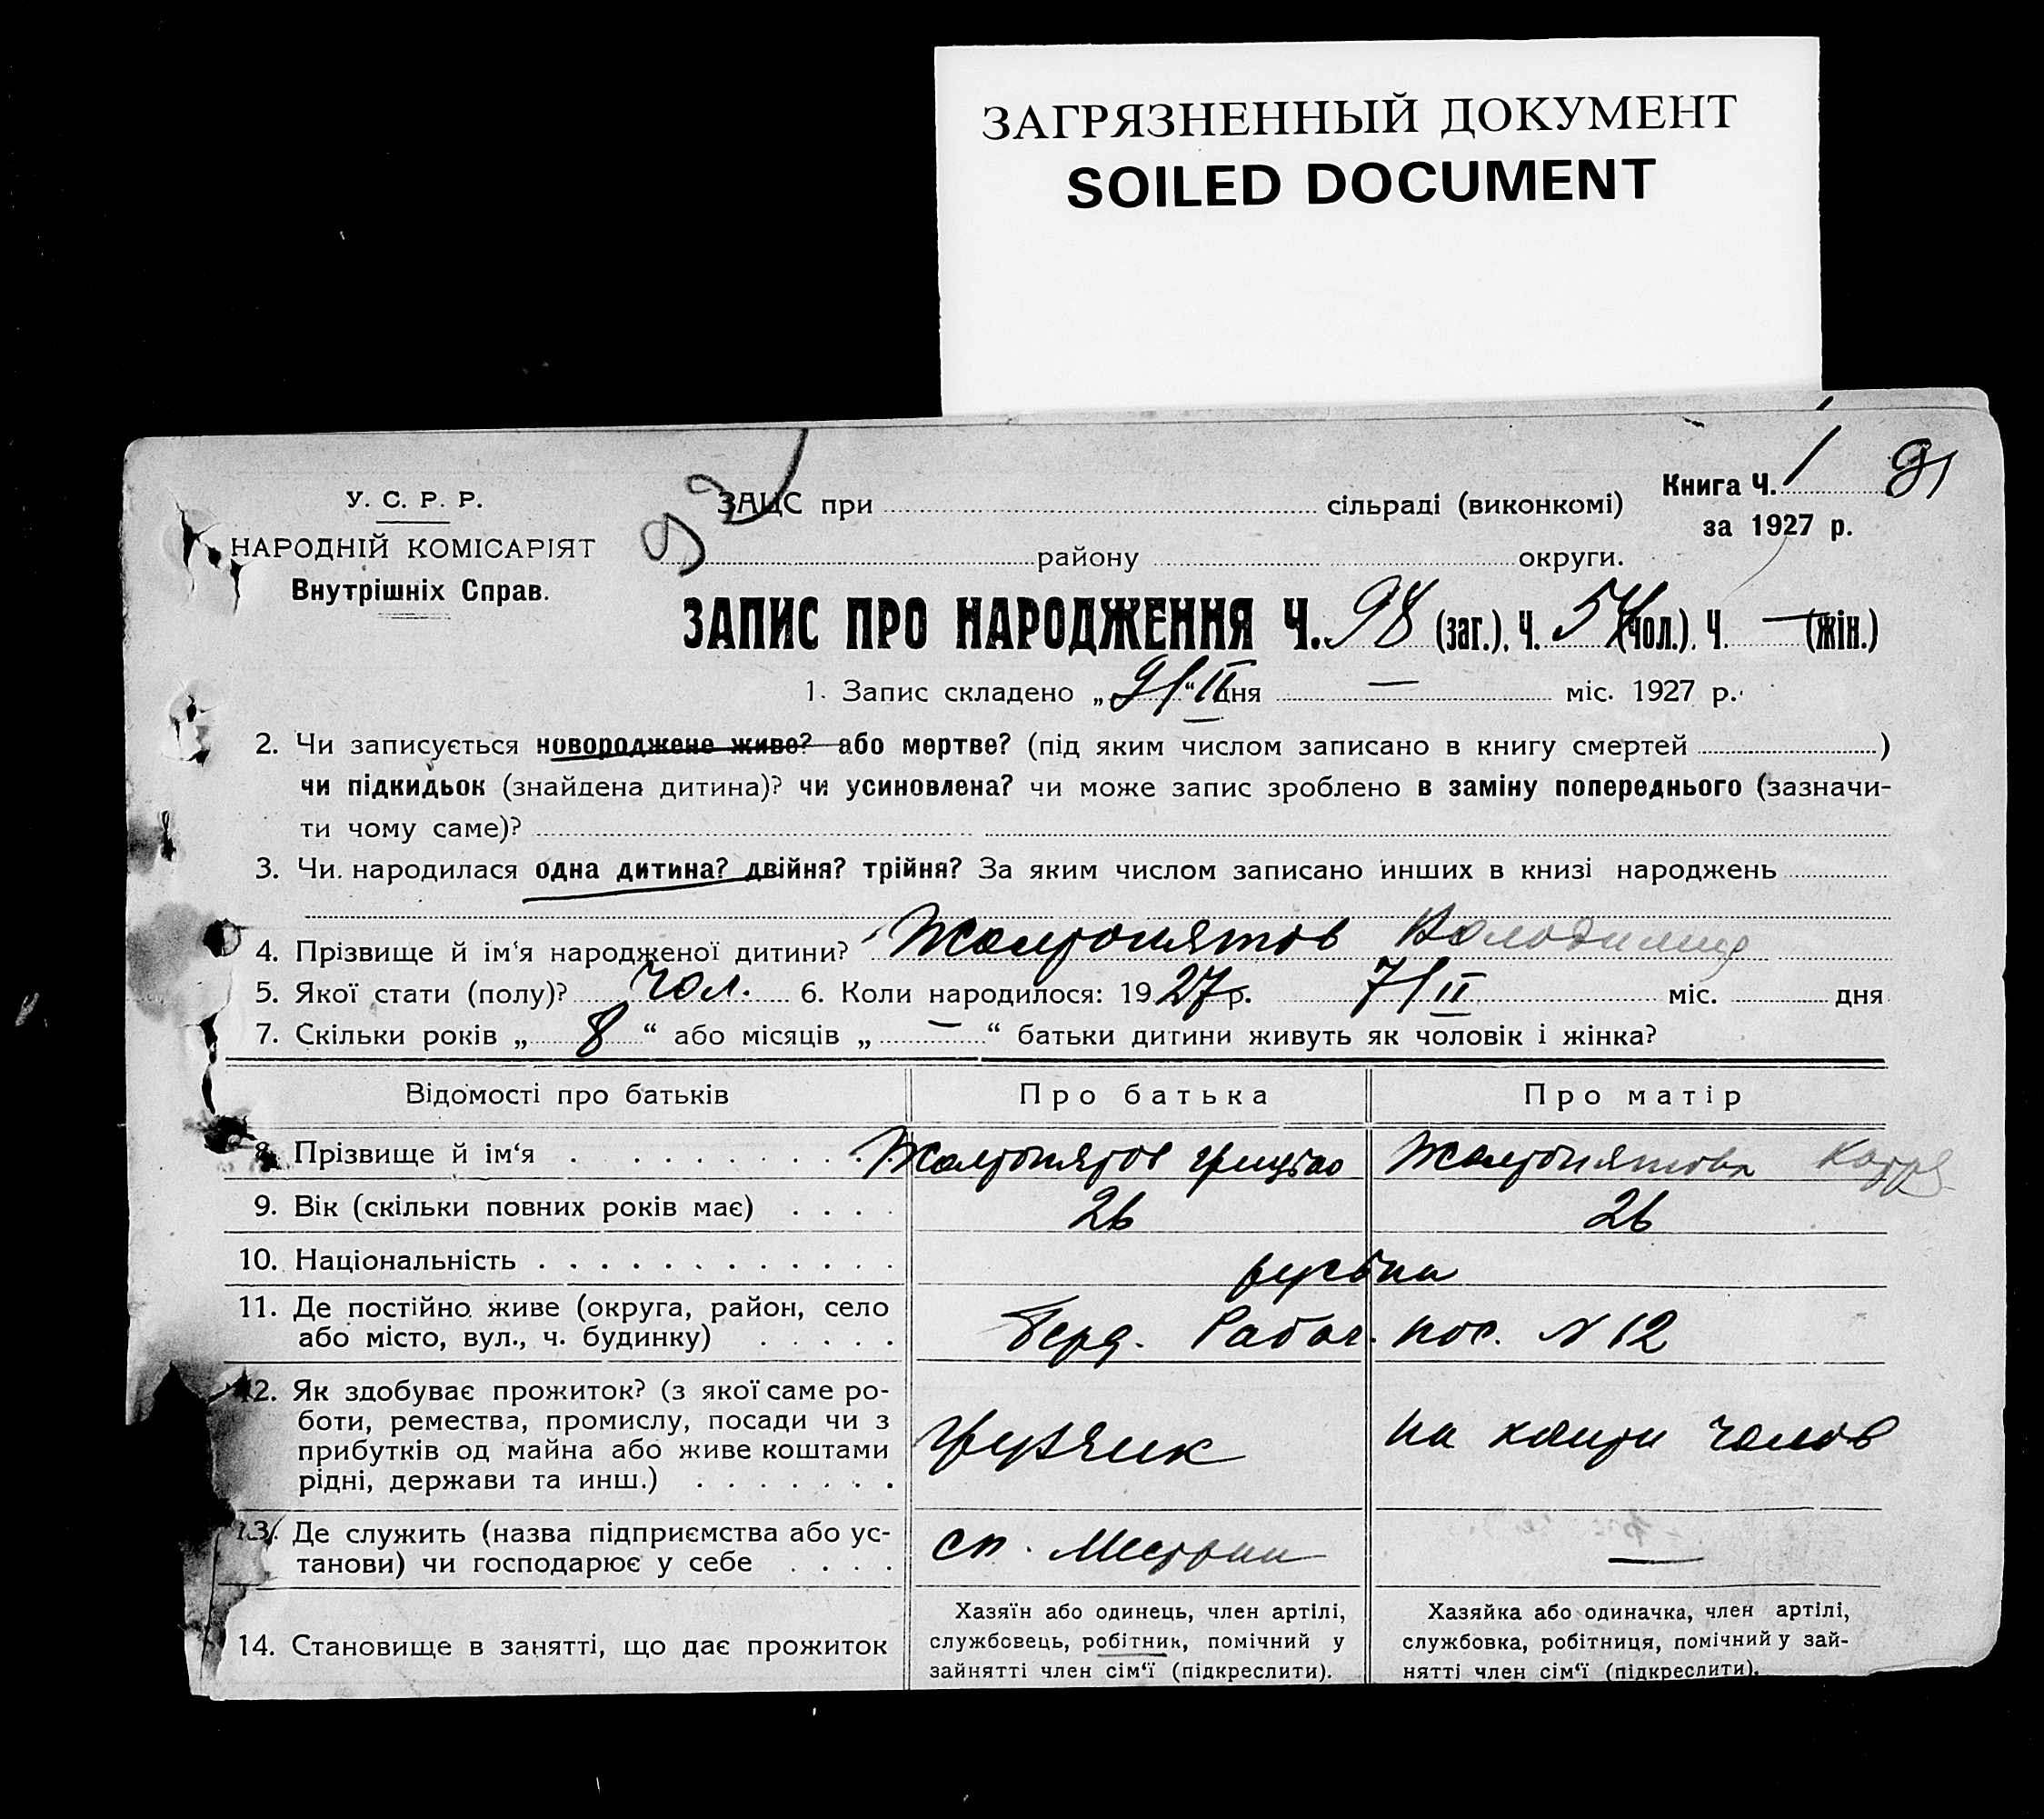 ЗАГРЯЗНЕННЫЙ ДОКУМЕНТ
SOILED DOCUMENT
92
У. С. Р. Р.
НАРОДНІЙ КОМІСАРІЯТ
Внутрішніх Справ.
ЗАЦС при сільраді (виконкомі)
району округи.
Книга Ч. 1 91
за 1927 р.
ЗАПИС ПРО НАРОДЖЕННЯ Ч. 98 (заг.), Ч. 54 (чол.), Ч. — (жін.)
1. Запис складено „9/II“ дня — міс. 1927 р.
2. Чи записується новороджене живе? або мертве? (під яким числом записано в книгу смертей )
чи підкидьок (знайдена дитина)? чи усиновлена? чи може запис зроблено в заміну попереднього (зазначи-
ти чому саме)?
3. Чи народилася одна дитина? двійня? трійня? За яким числом записано инших в книзі народжень
4. Прізвище й ім‘я народженої дитини? Володимир
5. Якої стати (полу)? чол. 6. Коли народилося: 1927 р. 7/II міс. дня
7. Скільки років „ 8 “ або місяців „ — “ батьки дитини живуть як чоловік і жінка?
Відомості про батьків Про батька Про матір
8. Прізвище й ім‘я
9. Вік (скільки повних років має) 26 26
10. Національність
11. Де постійно живе (округа, район, село
або місто, вул., ч. будинку)
Берд. Рабоч. пос. N 12
12. Як здобуває прожиток? (з якої саме ро-
боти, ремества, промислу, посади чи з
прибутків од майна або живе коштами
рідні, держави та инш.)
грузчик на кошти чолов
13. Де служить (назва підприємства або ус-
танови) чи господарює у себе
сп. —
14. Становище в занятті, що дає прожиток
Хазяїн або одинець, член артілі,
службовець, робітник, помічний у
зайнятті член сім‘ї (підкреслити).
Хазяйка або одиначка, член артілі,
службовка, робітниця, помічний у зай-
нятті член сім‘ї (підкреслити).